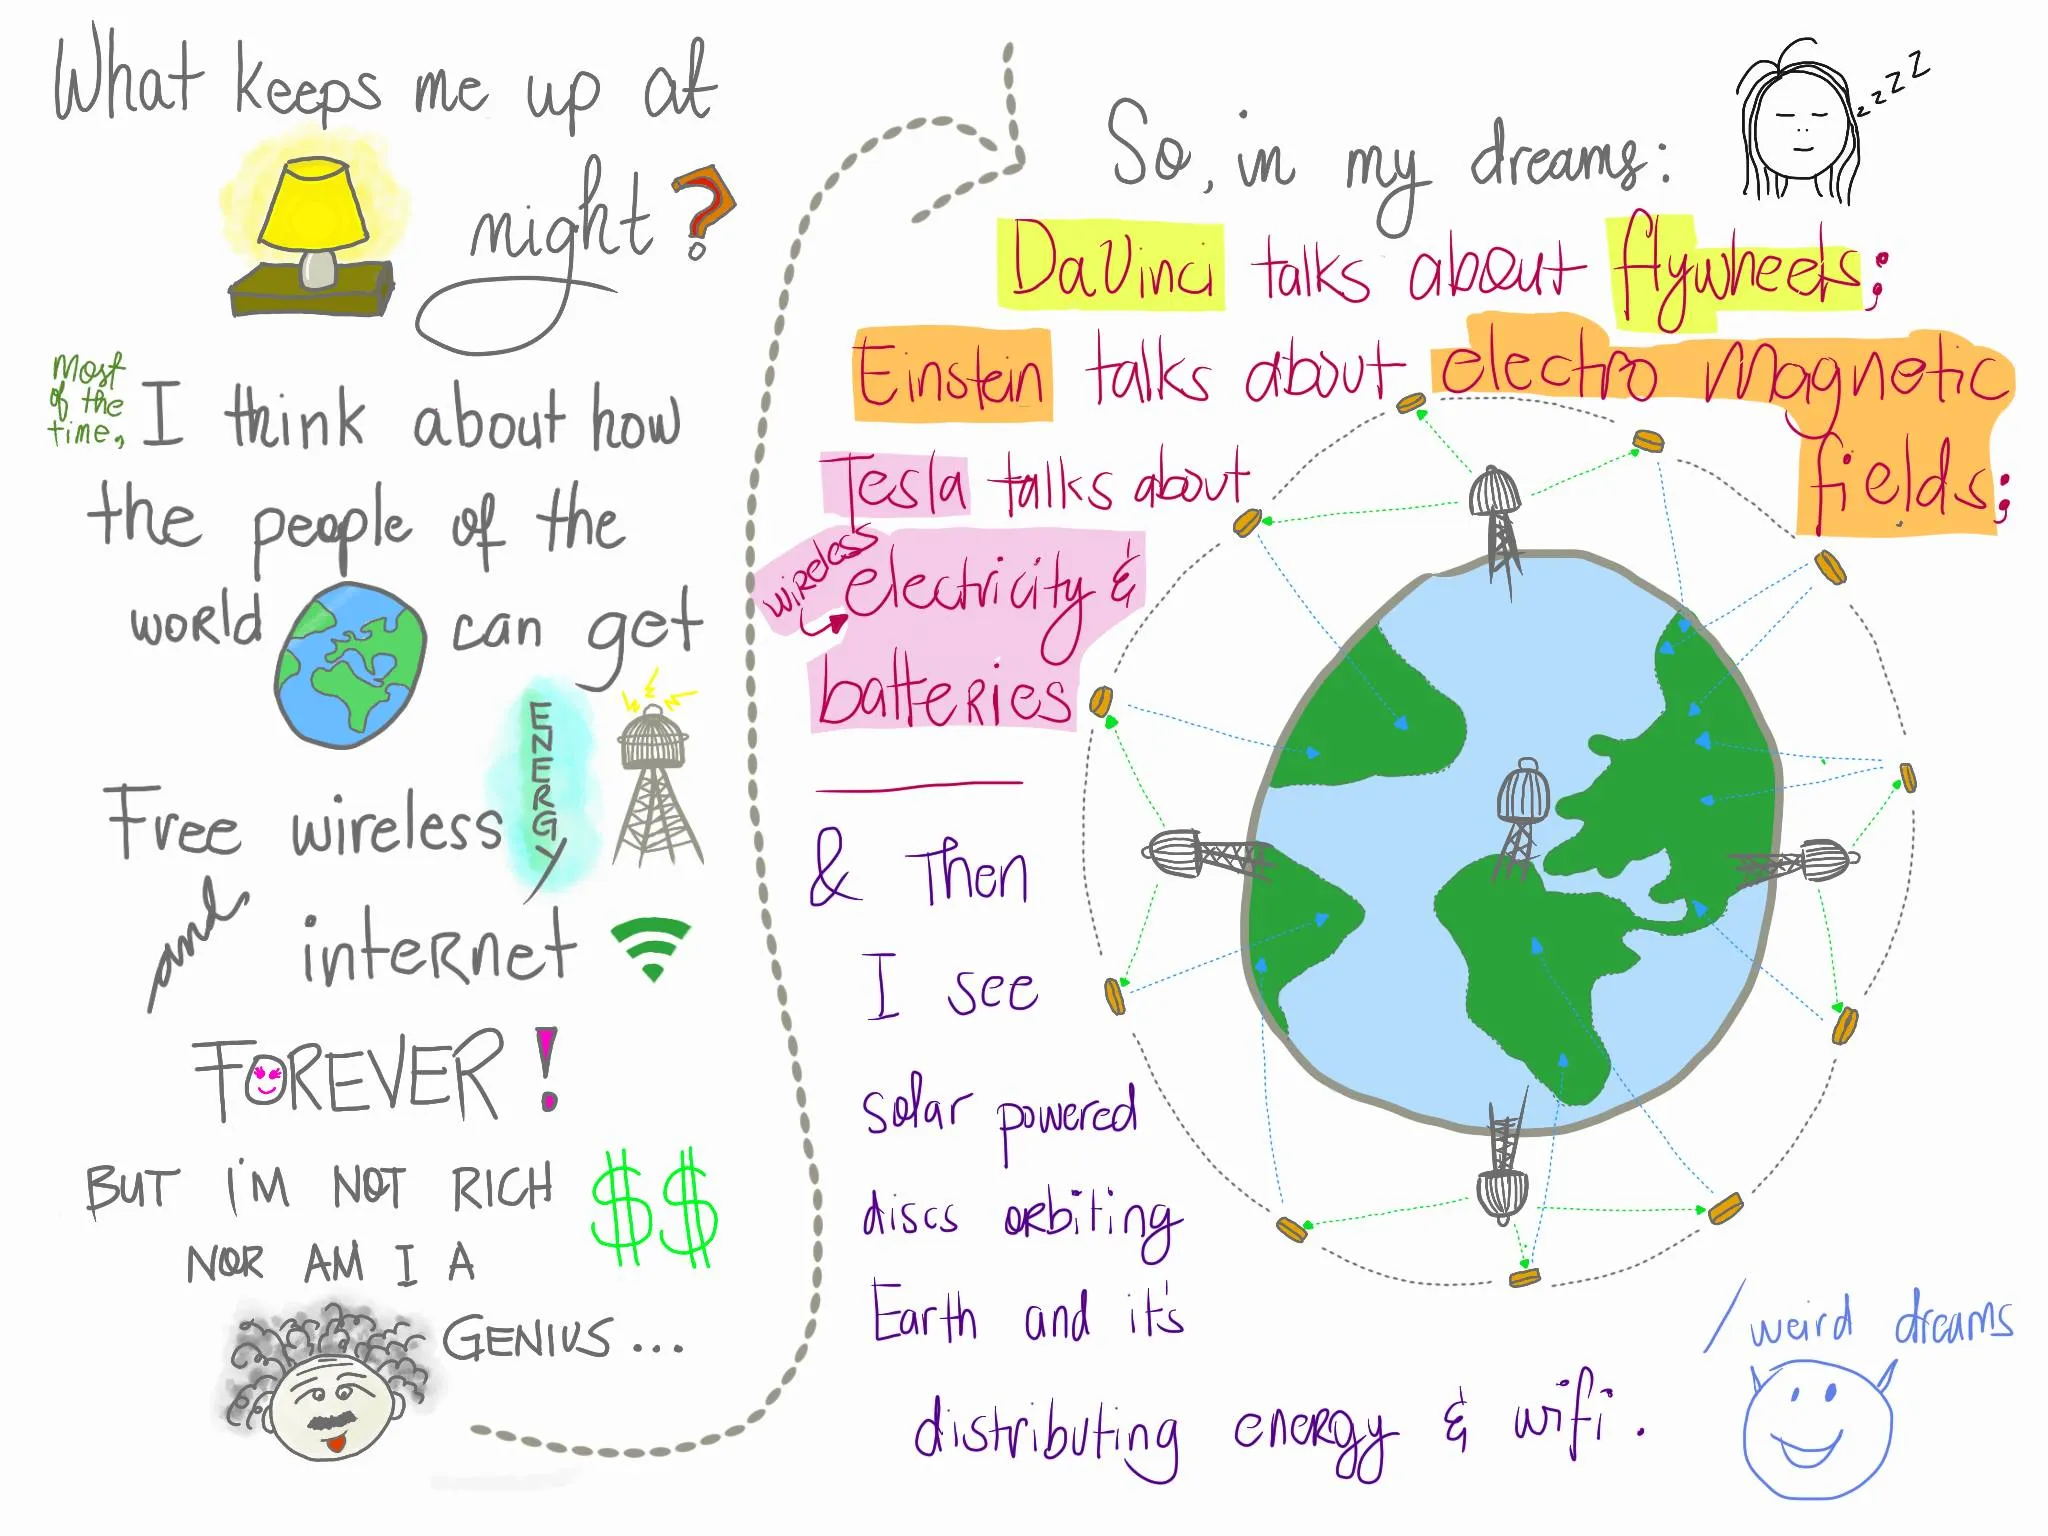 What keeps me up at
night?
Most
of the
time,
I think about how
the people of the
world can get
Free wireless
ENERGY
and
internet
FOREVER!
BUT I'M NOT RICH
$$
NOR AM I A
GENIUS...
So, in my dreams:
zzzzz
DaVinci talks about flywheels;
Einstein talks about electro magnetic
fields;
Tesla talks about
wireless
electricity &
batteries
& Then
I see
solar powered
discs orbiting
Earth and it's
distributing energy & wifi.
/weird dreams